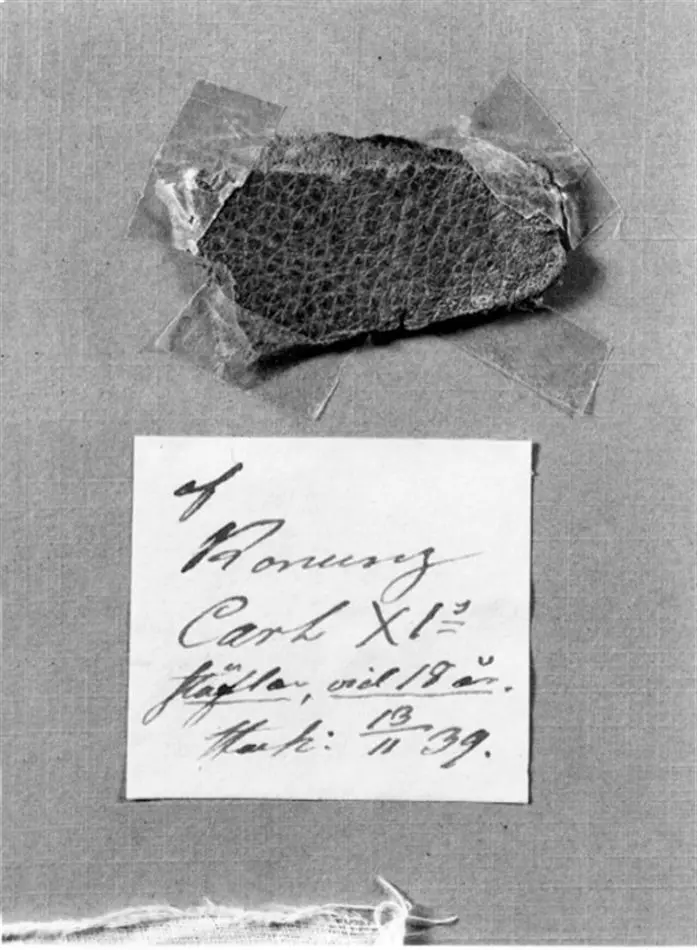 af
Konung
Carl XIs
stöflar, vid 18 år.
13/11 39.